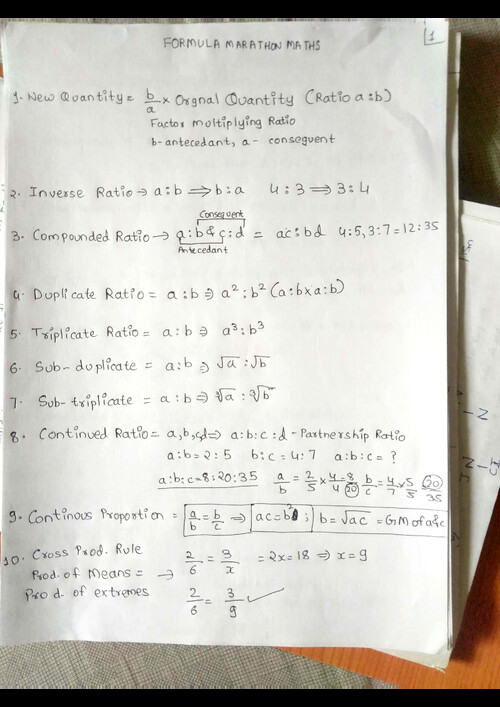 FORMULA MARATHON MATHS
1
1. New Quantity = b/a × Orgnal Quantity (Ratio a:b)
Factor multiplying Ratio
b-antecedant, a- consequent
2. Inverse Ratio → a:b ⇒ b:a 4:3 ⇒ 3:4
Consequent
3. Compounded Ratio → a:b & c:d = ac:bd 4:5, 3:7 = 12:35
Antecedant
4. Duplicate Ratio = a:b ⇒ a²:b² (a:b x a:b)
5. Triplicate Ratio = a:b ⇒ a³:b³
6. Sub-duplicate = a:b ⇒ √a:√b
7. Sub-triplicate = a:b ⇒ ∛a:∛b
8. Continued Ratio = a,b,c,d ⇒ a:b:c:d - Partnership Ratio
a:b = 2:5 b:c = 4:7 a:b:c = ?
a:b:c = 8:20:35 a/b = 2/5 × 4/4 = 8/20 b/c = 4/7 × 5/5 20/35
9. Continous Proportion = a/b = b/c ⇒ ac = b² ; b = √ac = GM of a&c
10. Cross Prod. Rule 2/6 = 3/x = 2x = 18 ⇒ x = 9
Prod. of Means = →
Prod. of extremes 2/6 = 3/9 ✓